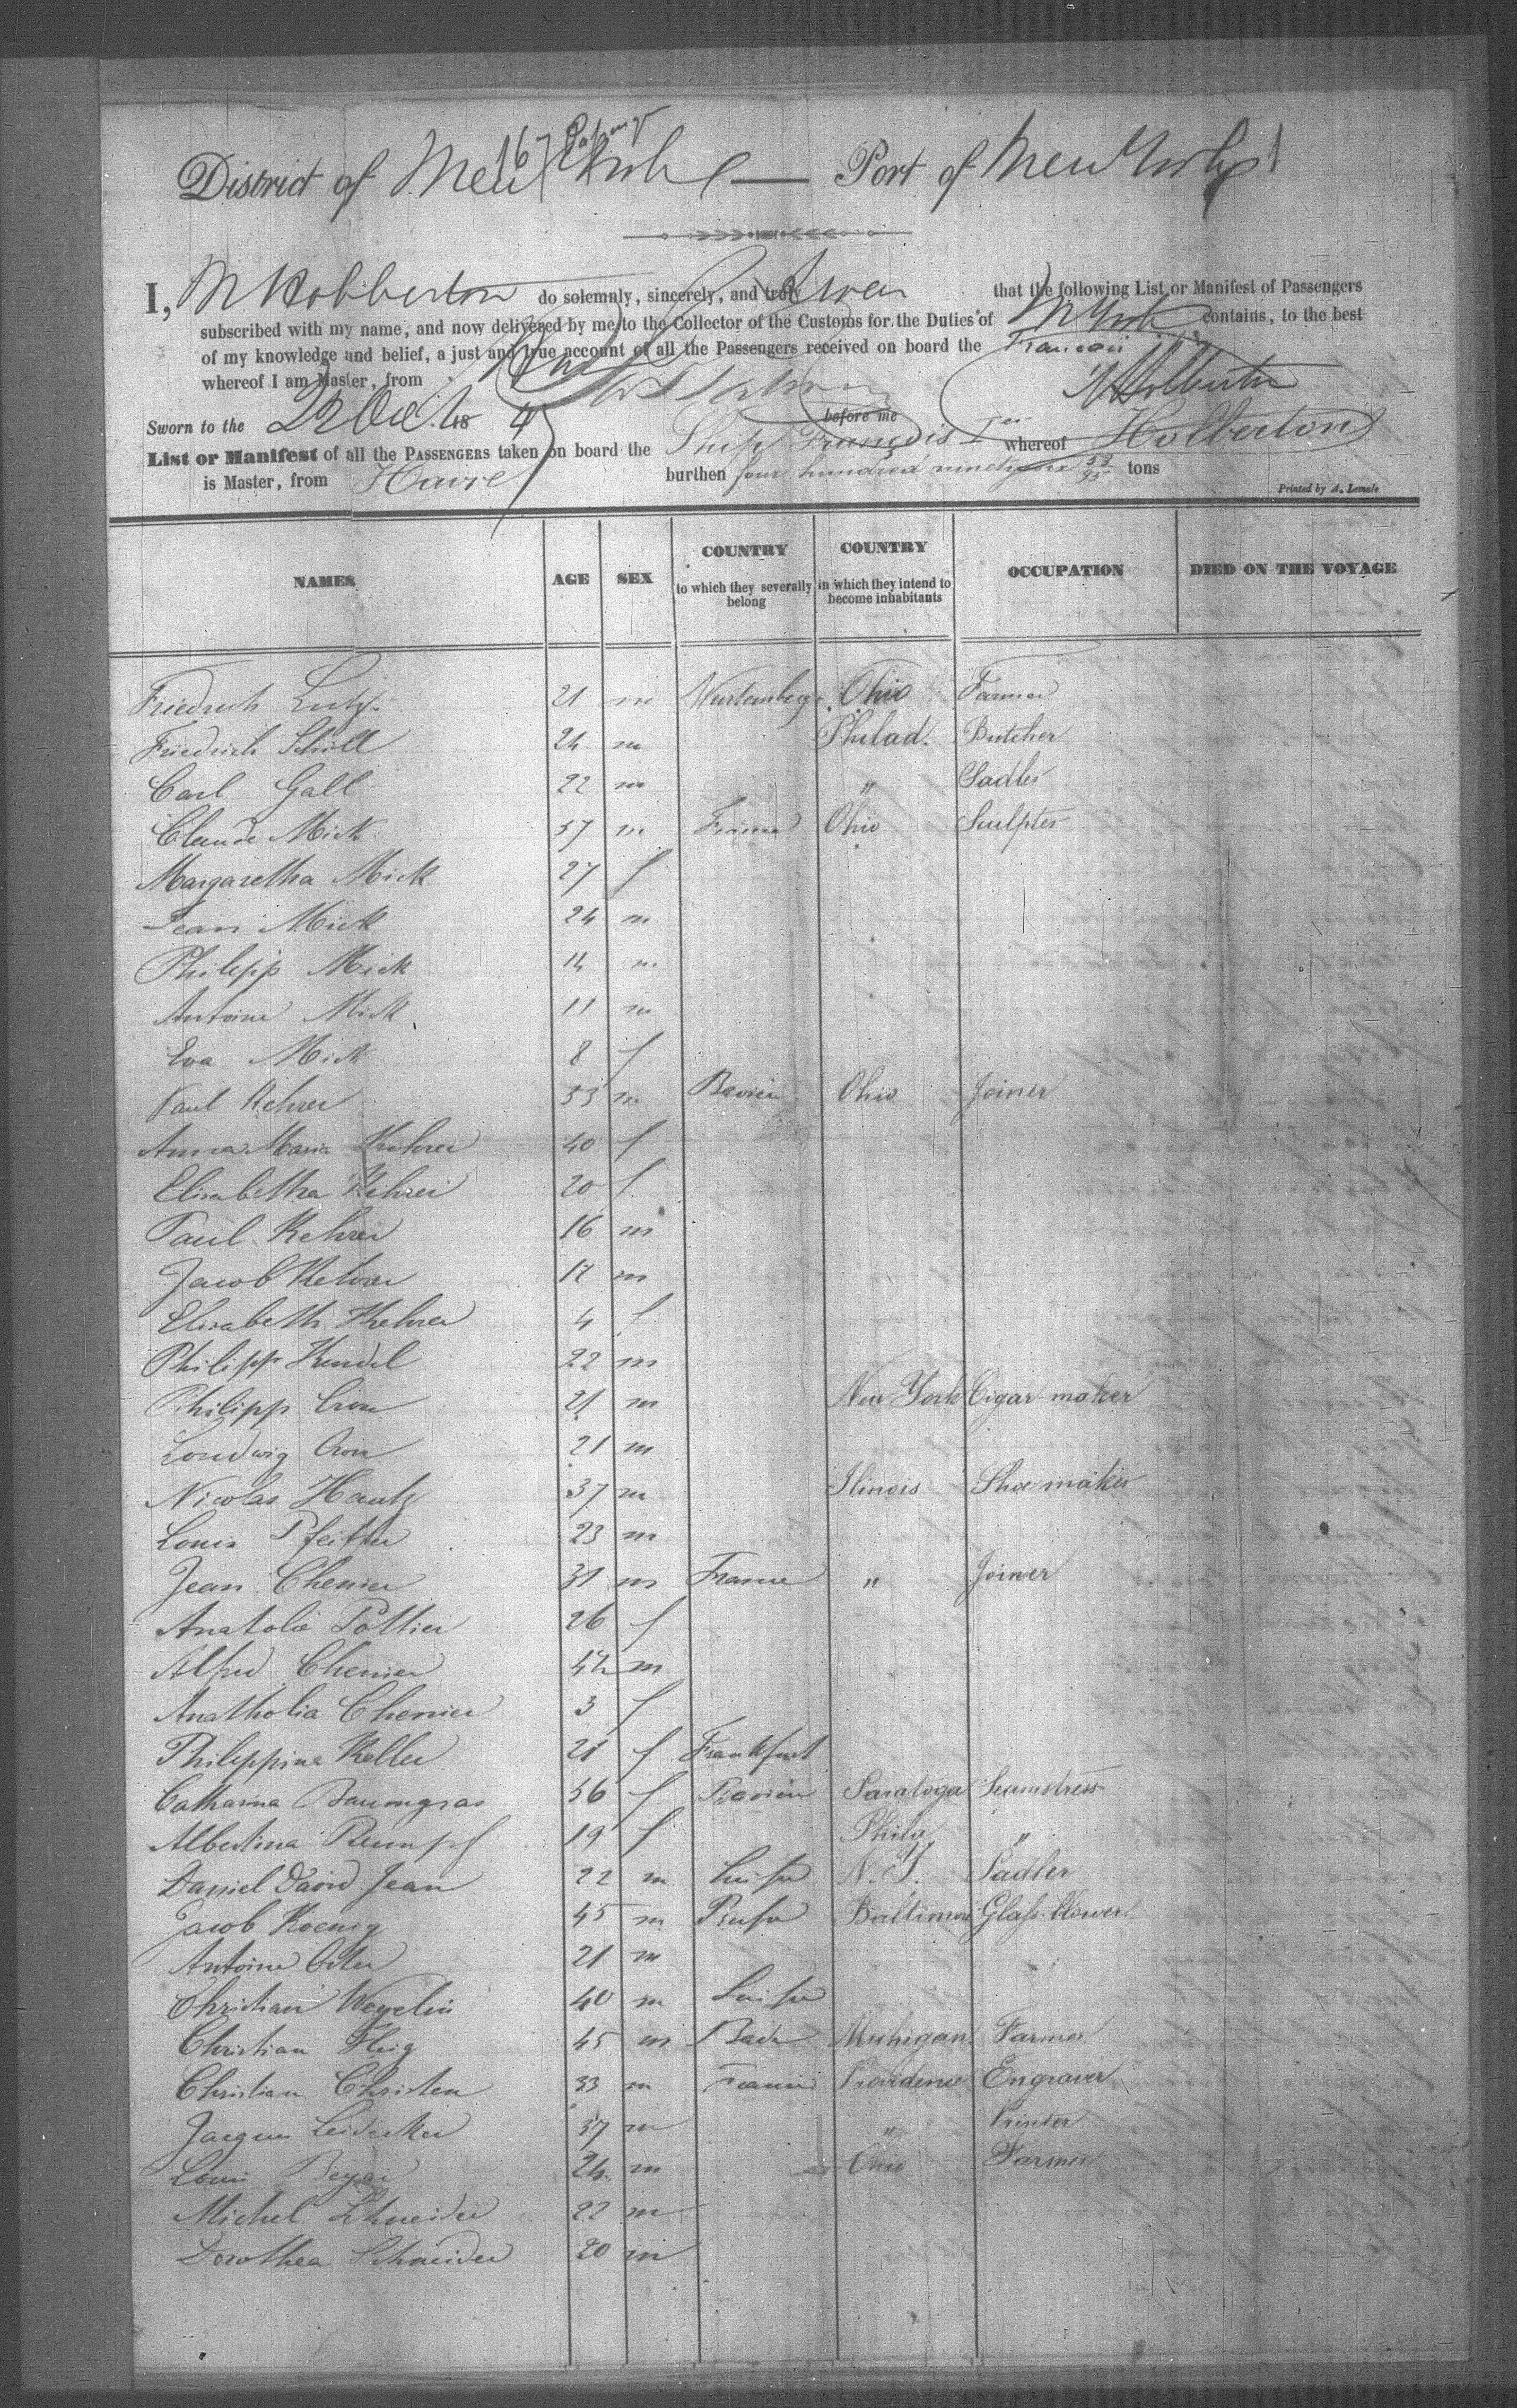 167 Passengr
District of New York — Port of New York
I, M Holberton do solemnly, sincerely, and truly Swear that the following List or Manifest of Passengers
subscribed with my name, and now delivered by me to the Collector of the Customs for the Duties of N York contains, to the best
of my knowledge and belief, a just and true account of all the Passengers received on board the Francois 1er
whereof I am Master, from
M Holberton
Sworn to the 22 Oct. 18 4 before me
List or Manifest of all the PASSENGERS taken on board the Ship François 1er whereof Holberton
is Master, from Havre burthen four hundred ninety tons
Printed by A. Lemale
NAMES AGE SEX COUNTRY to which they severally belong COUNTRY in which they intend to become inhabitants OCCUPATION DIED ON THE VOYAGE
Friedrich Lutz 21 m Wurtemberg Ohio Farmer
Friedrich Schill 24 m Philad. Butcher
Carl Gall 22 m " Sadler
Claude Mick 57 m France Ohio Sculpter
Margaretha Mick 27 f
Jean Mick 24 m
Philipp Mick 14 m
Antoine Mick 11 m
Eva Mick 8 f
Paul Kehrer 53 m Bavière Ohio Joiner
Anna Maria Kehrer 40 f
Elisabetha Kehrer 20 f
Paul Kehrer 16 m
Jacob Kehrer 17 m
Elisabeth Kehrer 4 f
Philipp Kundel 22 m
Philipp Cron 21 m New York Cigar maker
Loudwig Cron 21 m
Nicolas Hautz 37 m Ilinois Shoe maker
Louis Pfeiffer 23 m
Jean Chenier 31 m France " Joiner
Anatolie Pottier 26 f
Alfred Chenier m
Anatholia Chenier 3 f
Philippina Keller 21 f Frankfurt
Catharina Baumgras 56 f Bavière Saratoga Seamstress
Albertina Rumpf 19 f Phila "
Daniel David Jean 22 m Suisse N.Y. Sadler
Jacob Koenig 45 m Prusse Baltimore Glass blower
Antoine 21 m
Christian Wegelin 40 m Suisse
Christian Fleig 45 m Bade Michigan Farmer
Christian Christen 33 m France Providence Engraver
Jacques Leidecker 37 m " Printer
Louis Beyer 24 m Ohio Farmer
Michel Schneider 22 m
Dorothea Schneider 20 m